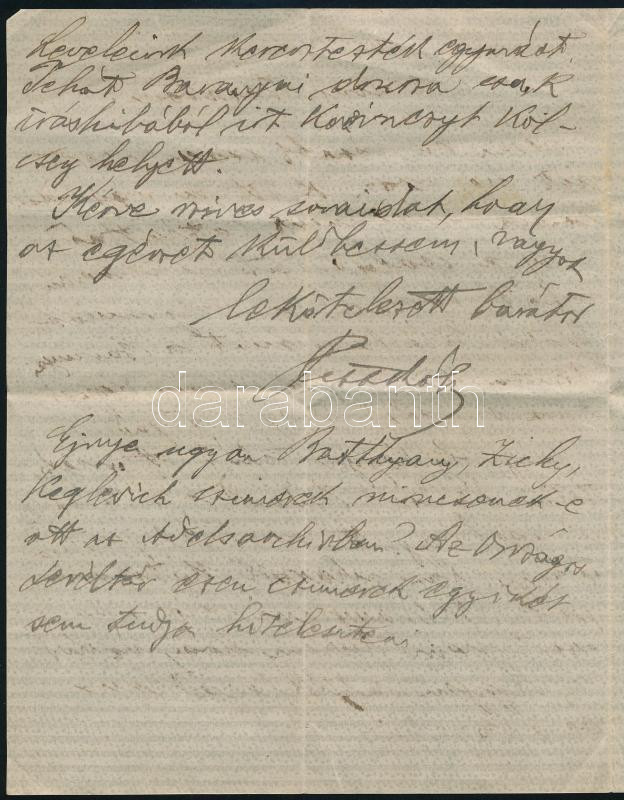 Leveleink keresztezték egymást.
Tehát Baranyai doktora csak
íráshibából írt Kazinczyt Köl-
csey helyett.
Kérve szíves soraidat, hogy
az egészet küldhessem, vagyok
lekötelezett barátod
darabanth
Ejnye ugyan Batthyany, Zichy,
Keglevich czímerek nincsenek-e
ott az Adelsarchivban? Az Országos
Levéltár ezen czímerek egyikét
sem tudja hitelesíteni.